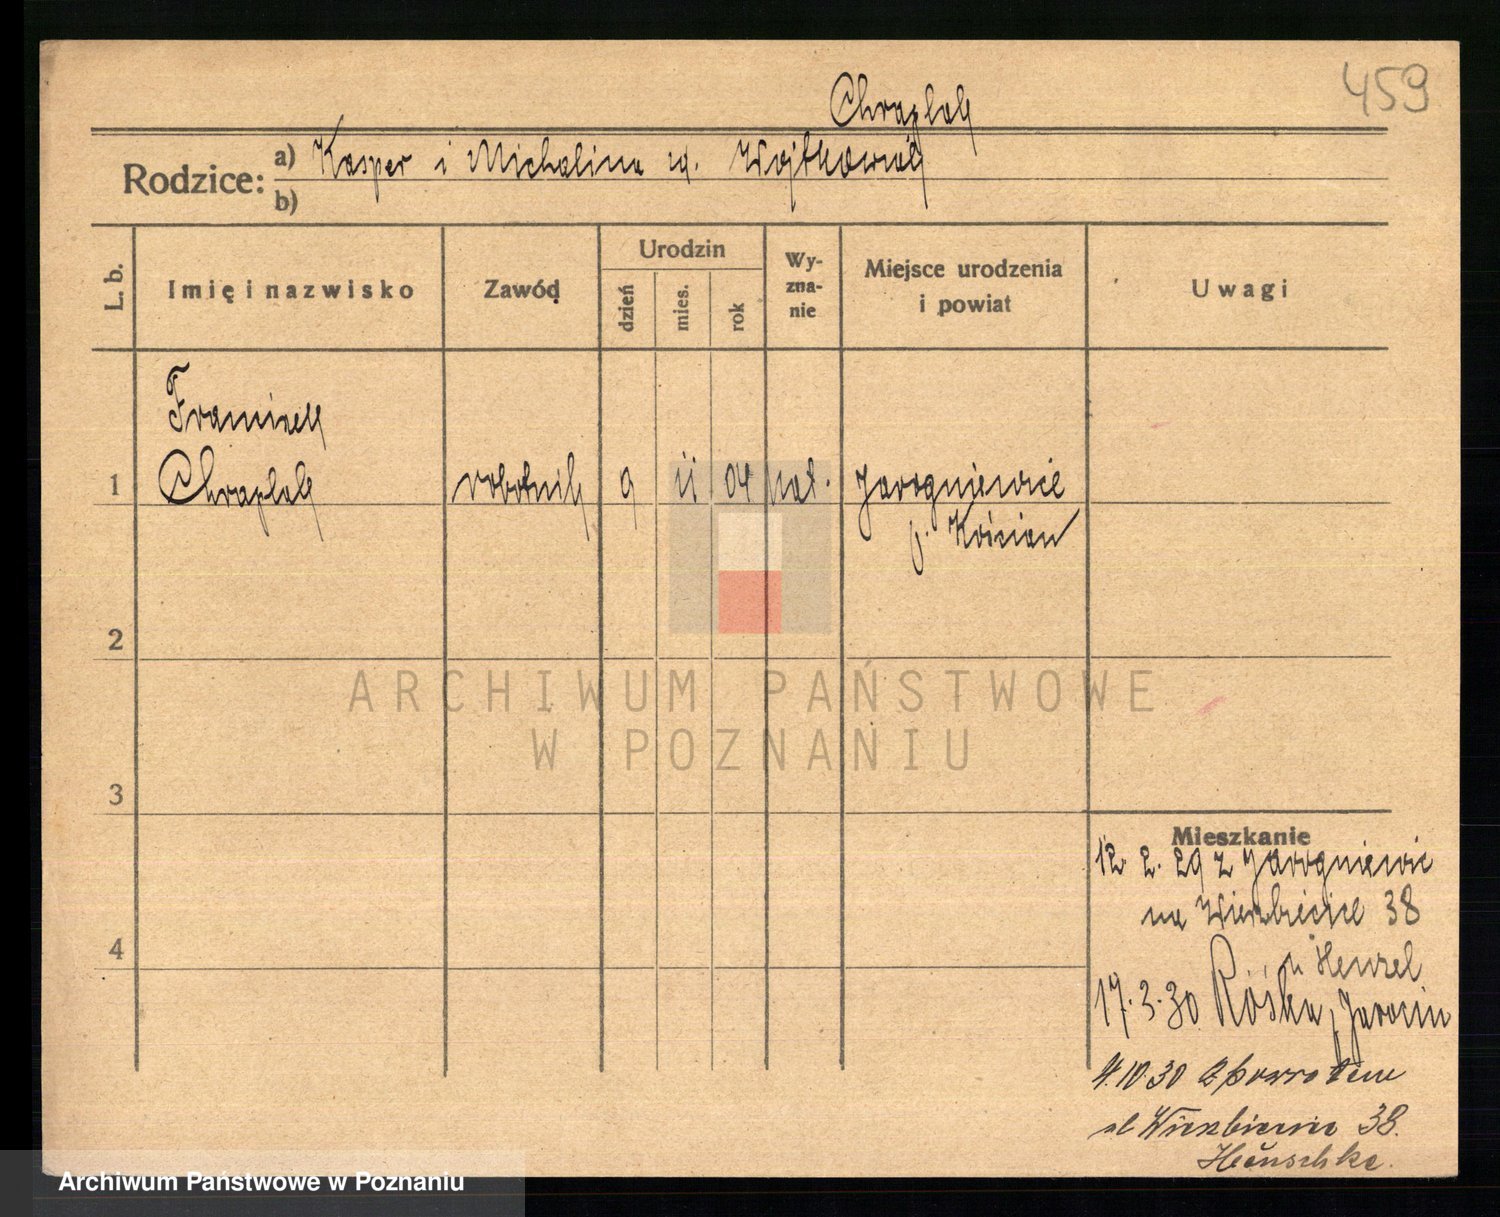 459
Chraplak
Rodzice: a) Kasper i Michalina ur. Wojtkowiak
b)
L. b.
Imię i nazwisko
Zawód
Urodzin
dzień
mies.
rok
Wy-
zna-
nie
Miejsce urodzenia
i powiat
Uwagi
Franciszek
1 Chraplak robotnik 9 11 04 kat. Jarogniewice
p. Kościan
2
ARCHIWUM PAŃSTWOWE
W POZNANIU
3
Mieszkanie
12. 2. 29 z Jarogniewic
na Wierzbięcice 38
4
u Henzel
17.3.30 Róśka, Jarocin
4.10.30 z powrotem
ul Wierzbięcice 38.
Heuschke.
Archiwum Państwowe w Poznaniu